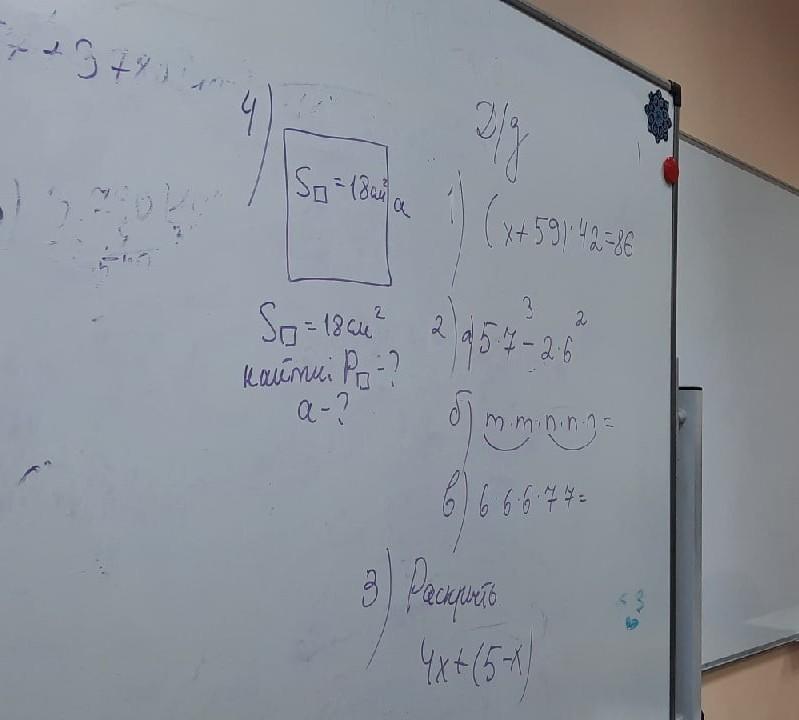 4)
S□ = 18 см² a
S□ = 18 см²
найти: P□ - ?
a - ?
Д/з
1) (x + 59) · 42 = 86
2) а) 5 · 7³ - 2 · 6²
б) m · m · n · n · n =
в) 6 6 · 6 · 7 7 =
3) Раскрыть
4x + (5 - x)